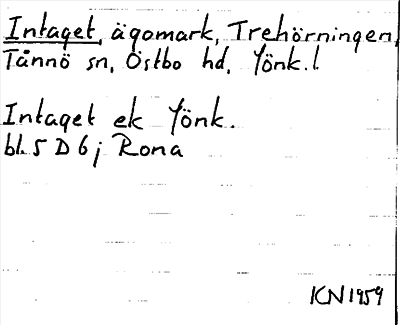 Intaget, ägomark, Trehörningen,
Tånnö sn, Östbo hd, Jönk. l
Intaget ek Jönk.
bl. 5 D 6 j Rona
KN 1959